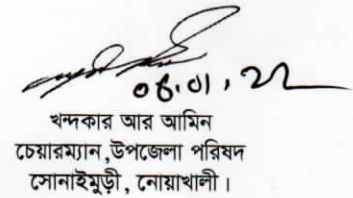 ০৪.০১.২২
খন্দকার আর আমিন
চেয়ারম্যান,উপজেলা পরিষদ
সোনাইমুড়ী, নোয়াখালী।